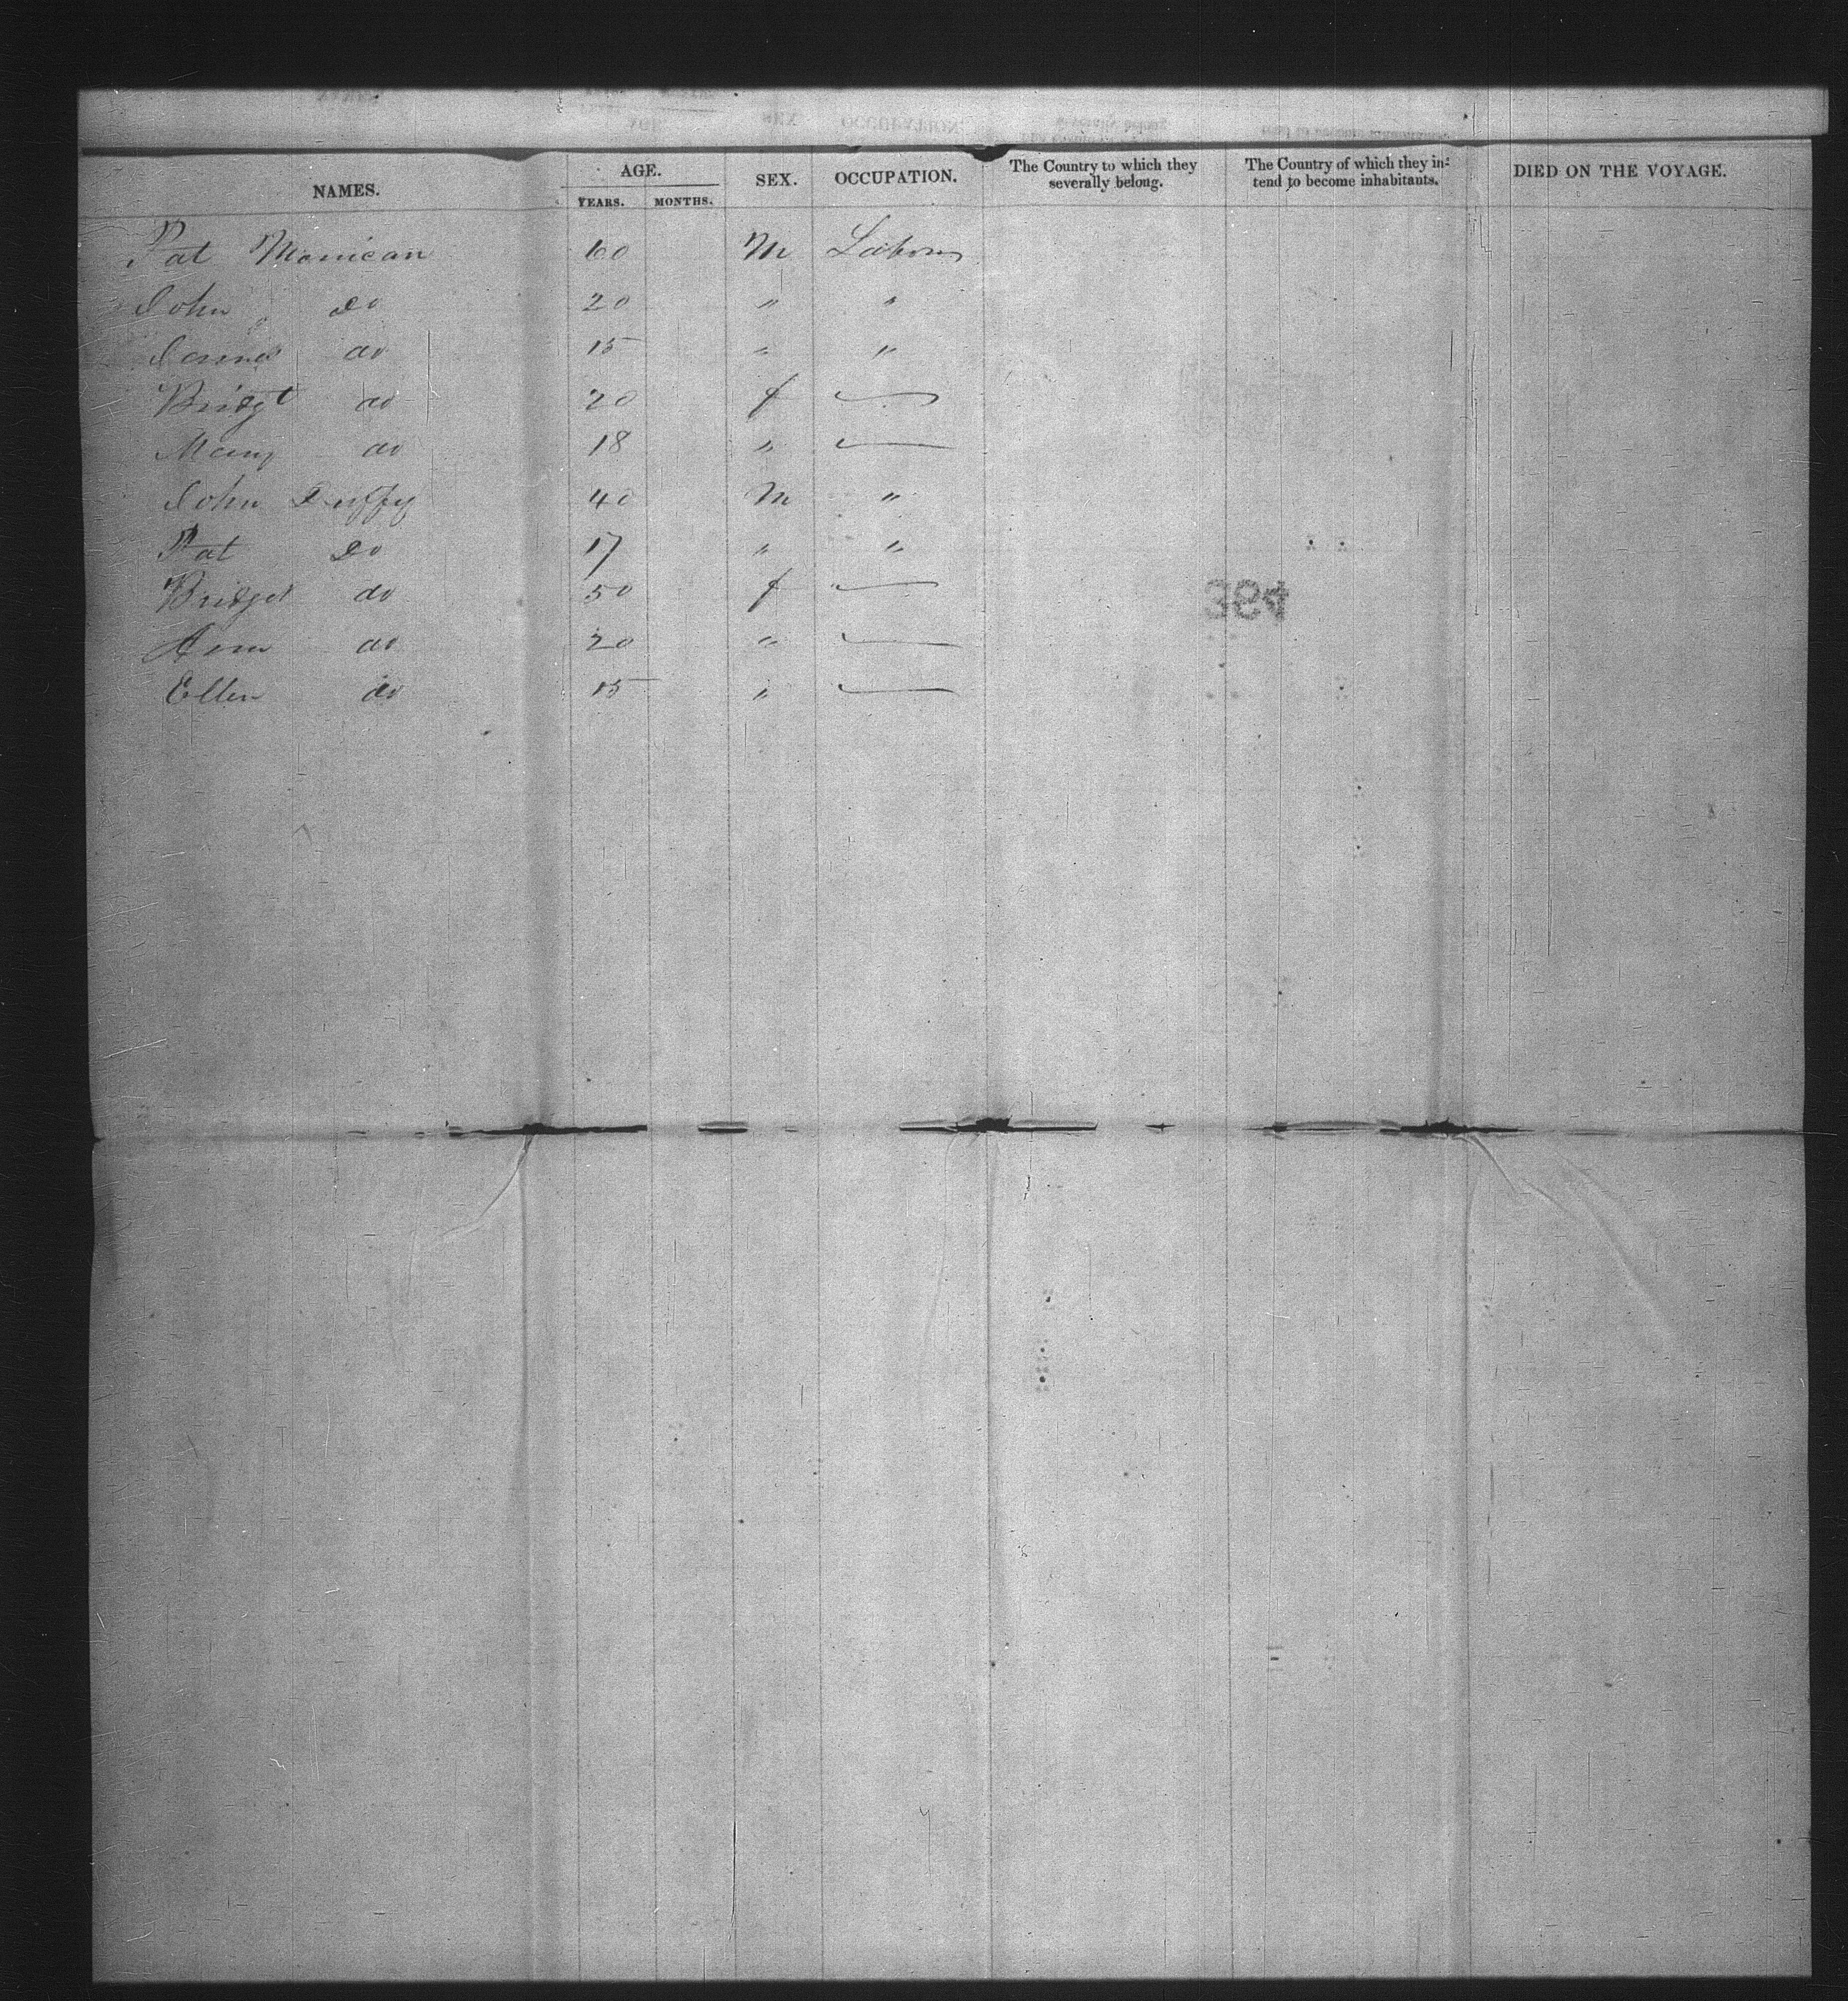 NAMES. AGE. YEARS. MONTHS. SEX. OCCUPATION. The Country to which they severally belong. The Country of which they in- tend to become inhabitants. DIED ON THE VOYAGE.
Pat 60 M Labour
John do 20 " "
James do 15 " "
Bridgt do 20 f
Mary do 18 "
John Duffy 40 M "
Pat do 17 " "
Bridget do 50 f
384
Ann do 20 "
Ellen do 15 "